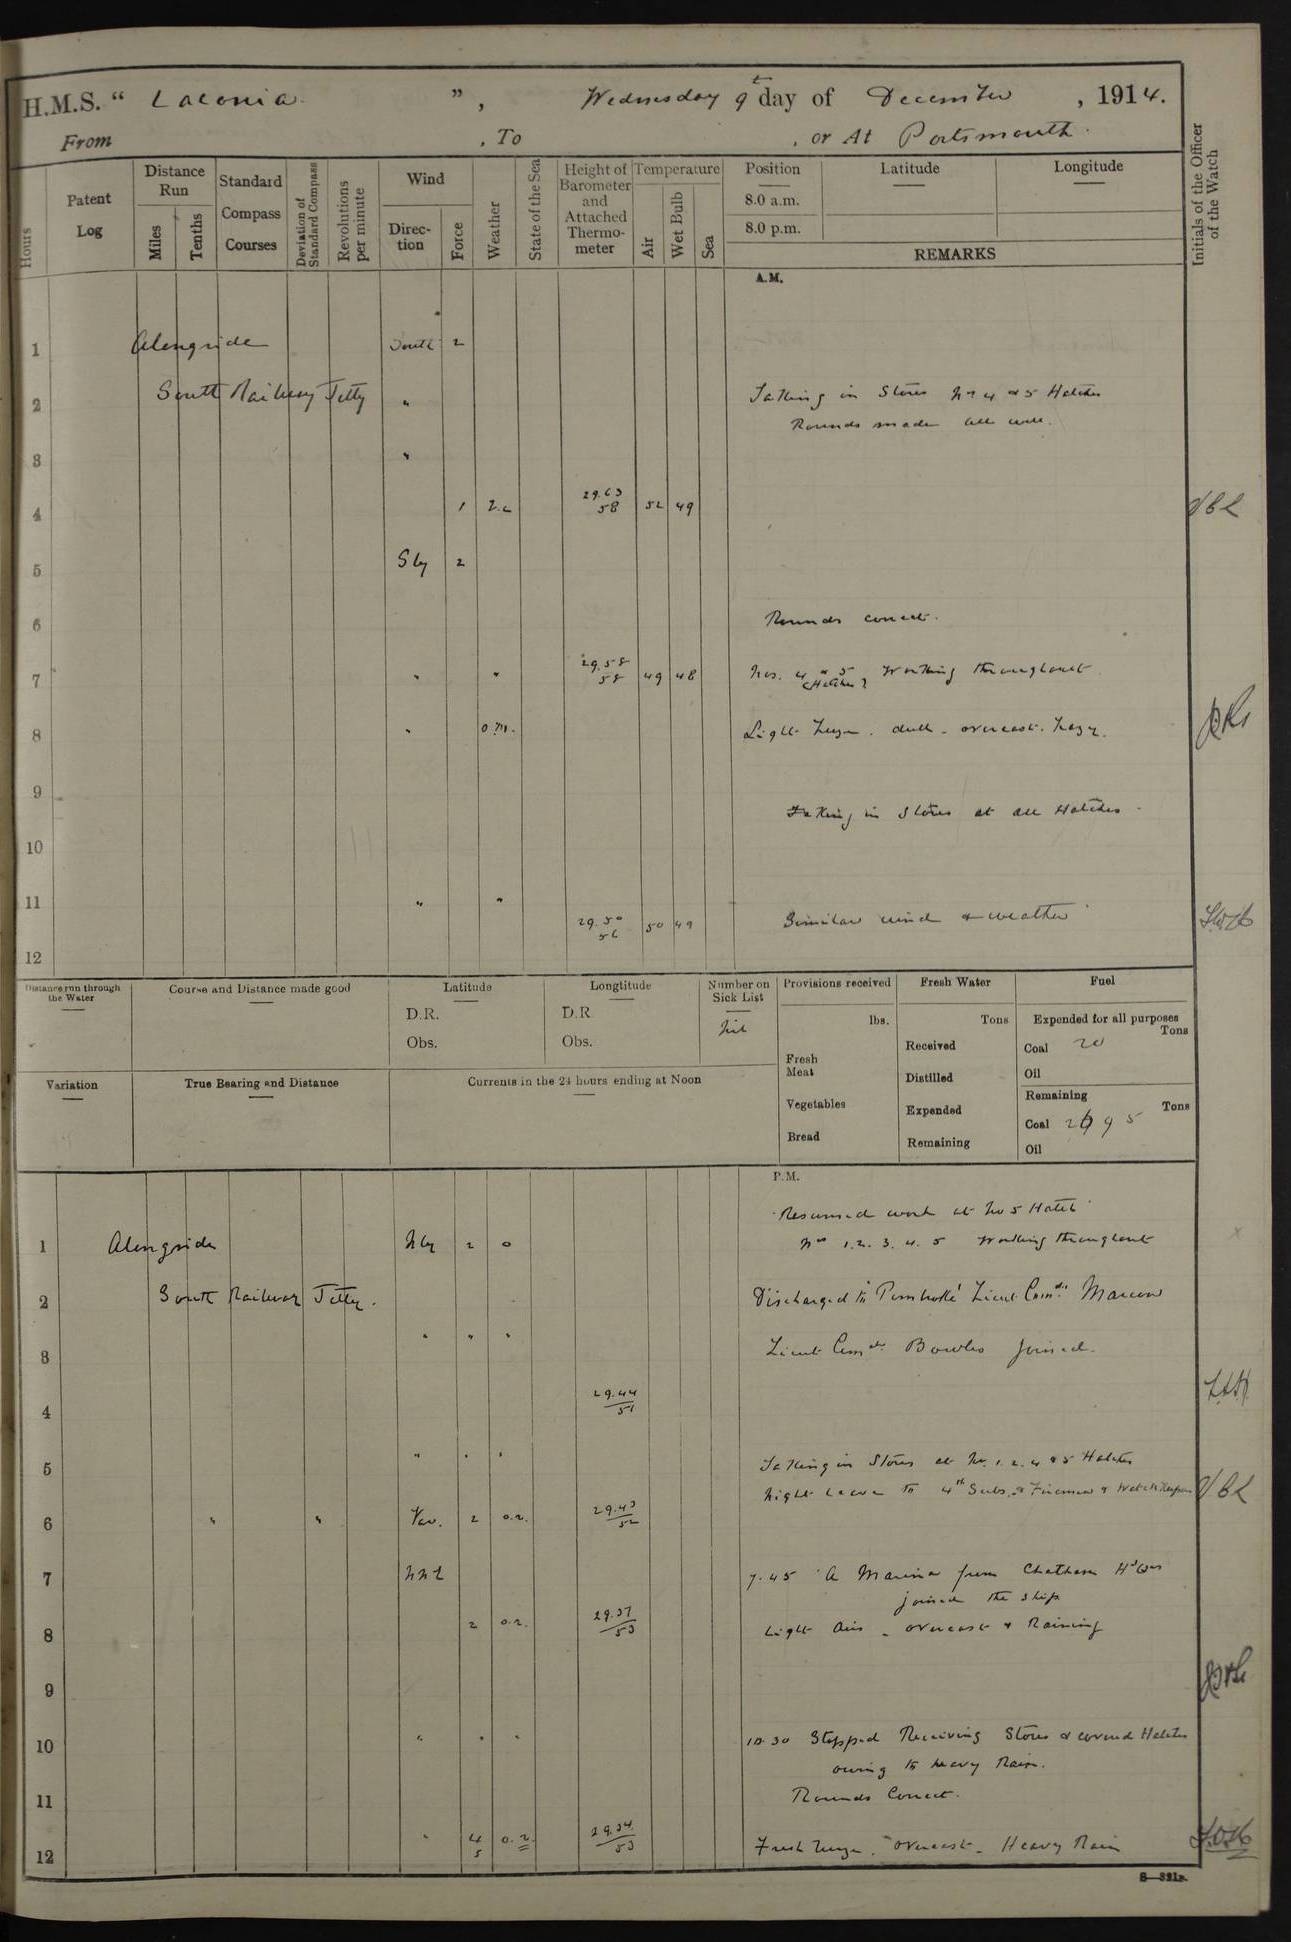 H.M.S. " Laconia ", Wednesday 9th day of December, 1914.
From , To , or At Portsmouth.
Hours
Patent Log
Distance Run
Miles
Tenths
Standard Compass Courses
Deviation of Standard Compass
Revolutions per minute
Wind
Direction
Force
Weather
State of the Sea
Height of Barometer and Attached Thermometer
Temperature
Air
Wet Bulb
Sea
Position
8.0 a.m.
8.0 p.m.
Latitude
Longitude
REMARKS
Initials of the Officer of the Watch
A.M.
1 Alongside South 2
2 South Railway Jetty " Taking in Stores No 4 & 5 Hatches
Rounds made all well.
3 "
4 1 29.63 58 52 49
5 Sly 2
6 Rounds correct.
7 " " 29.58 58 49 48 Nos. 4 & 5 (Hatches) Working throughout
8 " o.m. Light breeze. dull - overcast. hazy.
9 Taking in Stores at all Hatches -
10
11 " " 29.50 56 50 49 Similar wind & weather
12
Distance run through the Water
Course and Distance made good
Latitude
D.R.
Obs.
Longtitude
D.R
Obs.
Number on Sick List
Nil
Provisions received
lbs.
Fresh Meat
Vegetables
Bread
Fresh Water
Tons
Received
Distilled
Expended
Remaining
Fuel
Expended for all purposes
Tons
Coal 20
Oil
Remaining
Tons
Coal
Oil
Variation
True Bearing and Distance
Currents in the 24 hours ending at Noon
P.M.
Resumed work at No 5 Hatch
1 Alongside Nly 2 o Nos 1. 2. 3. 4. 5 Working throughout
2 South Railway Jetty. Discharged to 'Pembroke' Lieut Comdr
3 " " " Lieut Comdr Bowles joined.
4 29.44 51
5 " " " Taking in Stores at No. 1. 2. 4 & 5 Hatches
Night Leave to 4th Subs. & Firemen & Watch Keepers
6 " " Var. 2 o.r. 29.43 52
7 NNE 7.45 A Marine from Chatham Hd Qrs
joined the ship
8 2 o.r. 29.37 53 Light Airs - overcast & Raining
9
10 " " " 10.30 Stopped Receiving Stores & covered Hatches
owing to heavy Rain.
11 Rounds Correct.
12 " 4 5 o.r. 29.34 53 Fresh breeze. Overcast - Heavy Rain
S—321B.